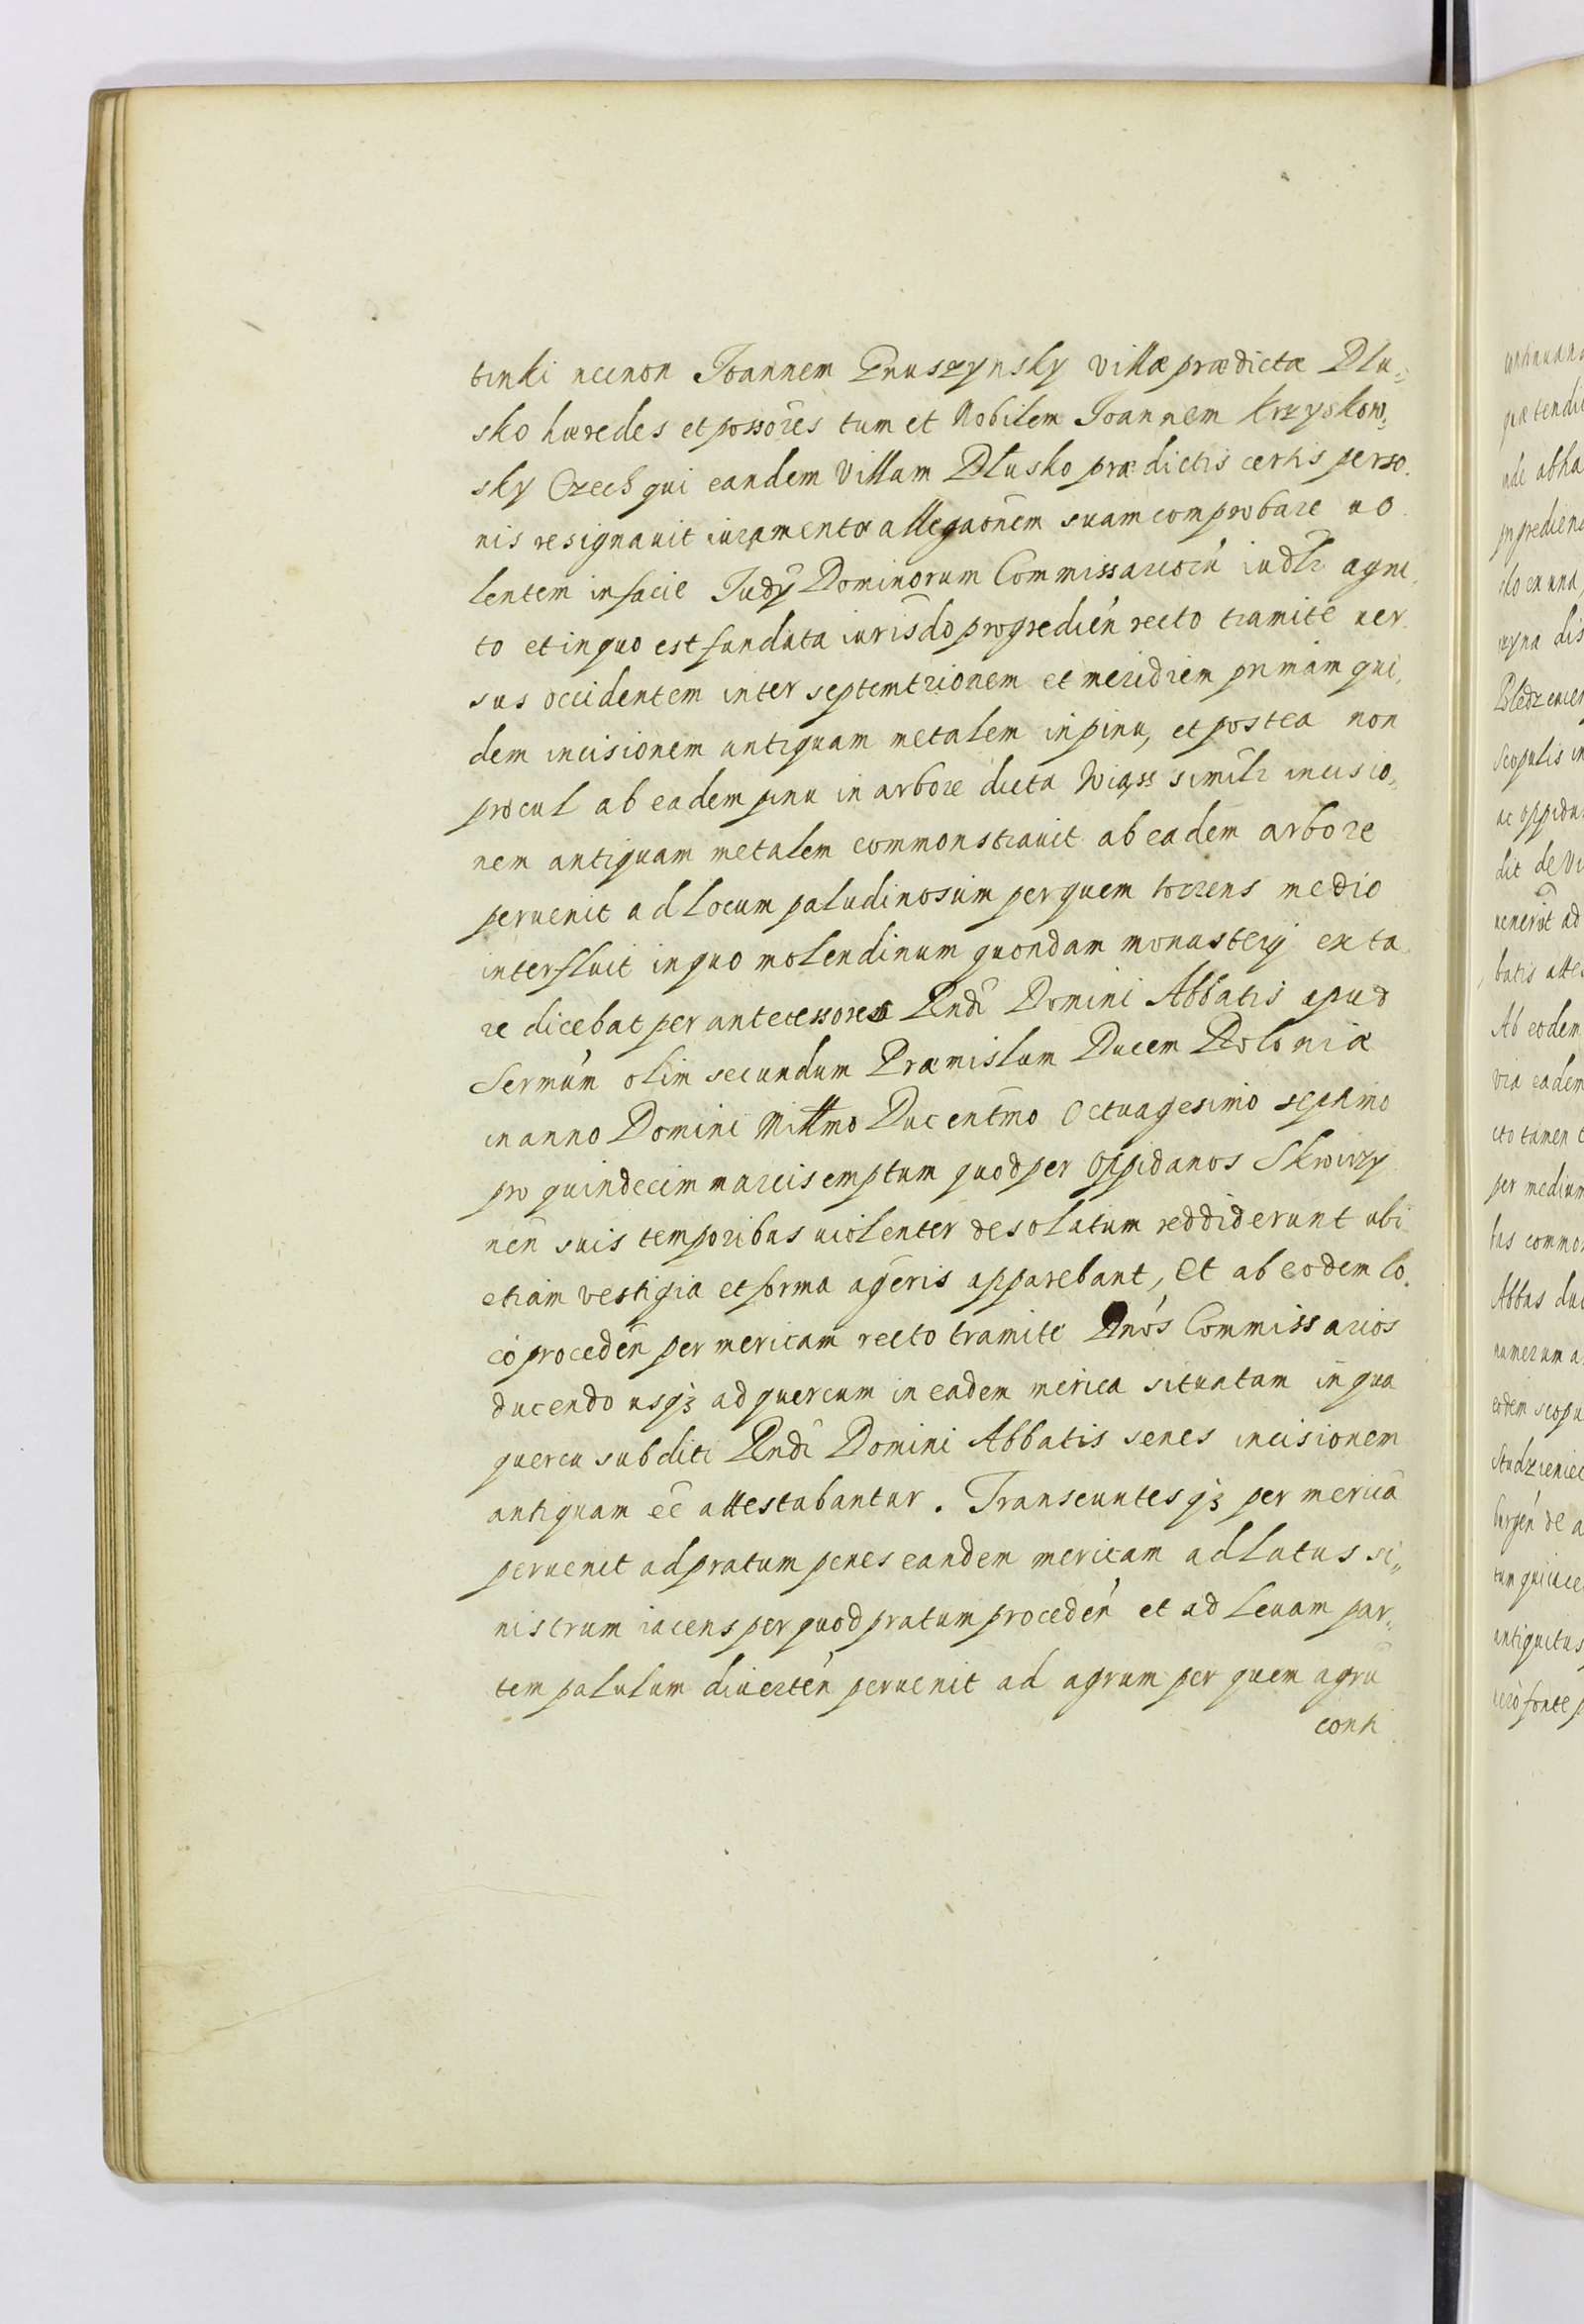 tinki necnon Joannem Pruszynsky villæ prædictæ Dlu-
sko hæredes et possores tum et Nobilem Joannem Krzyskow-
sky Czech qui eandem Villam Dłusko prædictis certis perso-
nis resignauit iuramento allegaōnem suam comprobare uo
lentem in facie Judÿ Dominorum Commissariorū iudlr agni
to et in quo est fundata iurisdō progredień recto tramite uer
sus occidentem inter septemtrionem et meridiem primam qui
dem incisionem antiquam metalem in pinu, et postea non
procul ab eadem pinu in arbore dicta Wiąss similr incisio-
nem antiquam metalem commonstrauit ab eadem arbore
peruenit ad locum paludinosum per quem torrens medio
interfluit in quo molendinum quondam monasterÿ exta
re dicebat per antecessores Rndi Domini Abbatis apud
Sermūm olim secundum Præmislum Ducem Poloniæ
in anno Domini Millmo Ducentmo Octuagesimo septimo
pro quindecim marcis emptum quod per oppidanos Skwirzy
nen suis temporibus uiolenter desolatum reddiderunt ubi
etiam vestigia et forma ageris apparebant, Et ab eodem lo-
co proceden per mericam recto tramite Dnos Commissarios
ducendo usqȝ ad quercum in eadem merica situatam in qua
quercu subditi Rndi Domini Abbatis senes incisionem
antiquam eē attestabantur. Transeuntesqȝ per mericā
peruenit ad pratum penes eandem mericam ad latus si-
nistrum iacens per quod pratum proceden et ad leuam par-
tem palulum diuerten peruenit ad agrum per quem agrū
conti